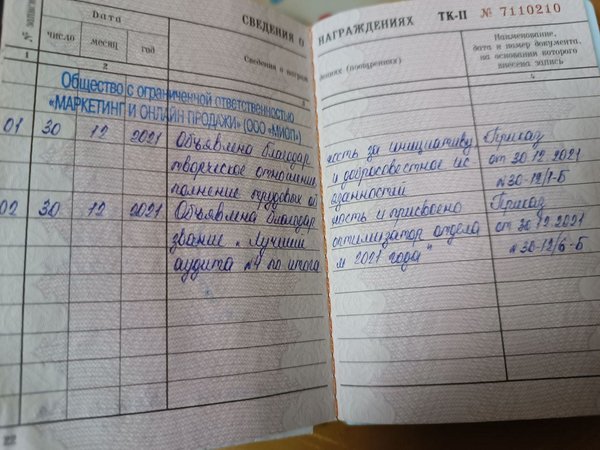 СВЕДЕНИЯ О НАГРАЖДЕНИЯХ ТК-II № 7110210
№ записи Дата Сведения о награждениях (поощрениях) Наименование, дата и номер документа, на основании которого внесена запись
число месяц год
1 2 3 4
Общество с ограниченной ответственностью
«МАРКЕТИНГ И ОНЛАЙН ПРОДАЖИ» (ООО «МИОП»)
01 30 12 2021 Объявлена благодарность за инициативу, Приказ
творческое отношение и добросовестное ис- от 30.12.2021
полнение трудовых обязанностей №30-12/1-Б
02 30 12 2021 Объявлена благодарность и присвоено Приказ
звание „Лучший оптимизатор отдела от 30.12.2021
аудита №4 по итогам 2021 года" №30-12/6-Б
22